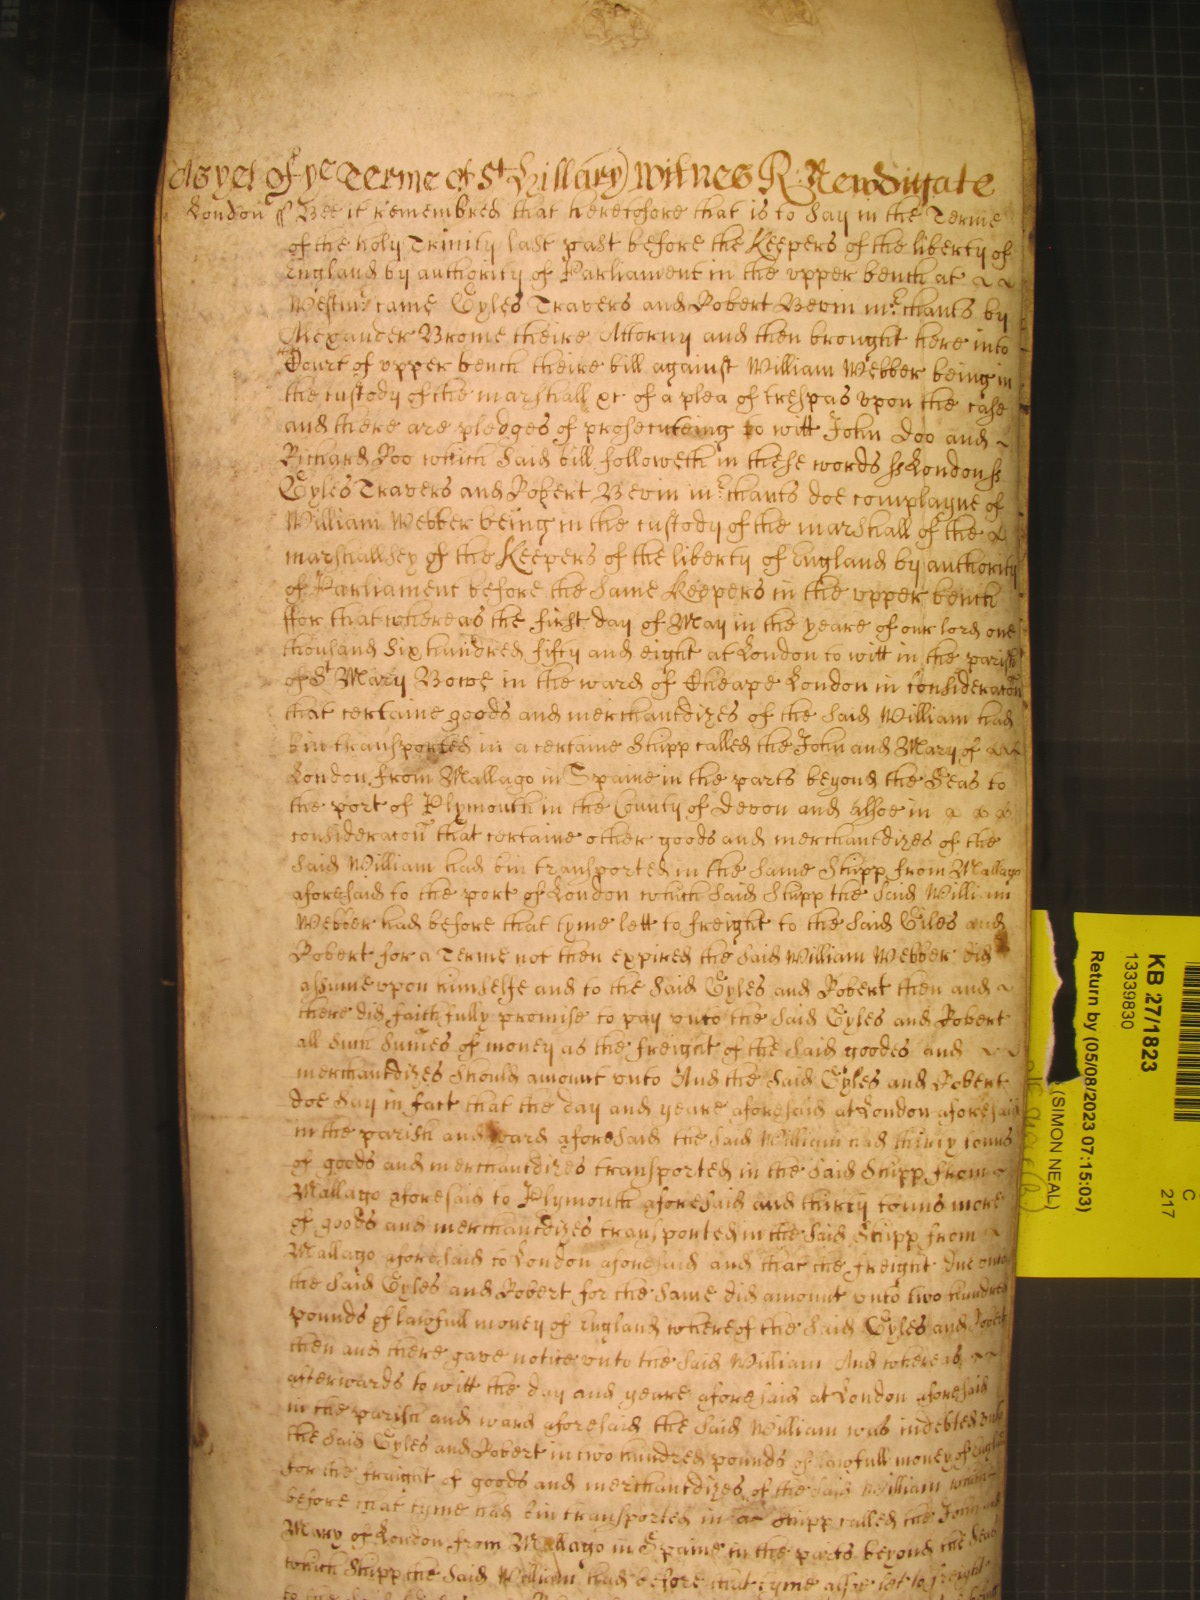 As yet of ye Terme of St Hillary Witnes R: Newdigate
London ss Bee it remembred that heretofore that is to say in the Terme
of the holy Trinity last past before the Keepers of the liberty of
England by authority of Parliament in the upper bench at
Westmr came Gyles Travers and Robert Bevin mrchants by
Alexander Brome theire Attorny and then brought here into
Court of upper bench theire bill against William Webber being in
the custody of the marshall &c of a plea of trespas upon the case
and there are pledges of prosecuteing to witt John Doo and
Richard Roo which said bill followeth in these words ss London ss
Gyles Travers and Robert Bevin mrchants doe complayne of
William Webber being in the custody of the marshall of the
marshallsey of the Keepers of the liberty of England by authority
of Parliament before the same Keepers in the upper bench
ffor that whereas the first day of May in the yeare of our lord one
thousand six hundred fifty and eight at London to witt in the parish
of St Mary Bowe in the ward of Cheape London in consideracon
that certaine goods and merchantdizes of the said William had
bin transported in a certaine Shipp called the John and Mary of
London from Mallago in Spaine in the parts beyond the Seas to
the port of Plymouth in the County of Devon and alsoe in
consideracon that certaine other goods and merchantdizes of the
said William had bin transported in the same Shipp from Mallago
aforesaid to the port of London which said Shipp the said William
Webber had before that tyme lett to freight to the said Giles and
Robert for a Terme not then expired the said William Webber did
assume upon himselfe and to the said Gyles and Robert then and
there did faithfully promise to pay unto the said Gyles and Robert
all such sumes of money as the freight of the said goodes and
merchantdizes should amount unto And the said Gyles and Robert
doe say in fact that the day and yeare aforesaid at London aforesaid
in the parish and ward aforesaid the said William had thirty tonns
of goods and merchantdizes transported in the said Shipp from
Mallago aforesaid to Plymouth aforesaid and thirty tonns more
of goods and merchantdizes transported in the said Shipp from
Mallago aforesaid to London aforesaid and that the freight due unto
the said Gyles and Robert for the same did amount unto two hundred
pounds of lawfull money of England whereof the said Gyles and Robert
then and there gave notice unto the said William And whereas
afterwards to witt the day and yeare aforesaid at London aforesaid
in the parish and ward aforesaid the said William was indebted unto
the said Gyles and Robert in two hundred pounds of lawfull money of England
for the fraight of goods and merchantdizes of the said William
before that tyme had bin transported in Shipp called the John and
Mary of London from Mallago in Spaine in the parts beyond the Seas
which Shipp the said William had before that tyme alsoe let to freight
KB 27/1823
13339830
Return by (05/08/2023 07:15:03)
(SIMON NEAL)
C
217